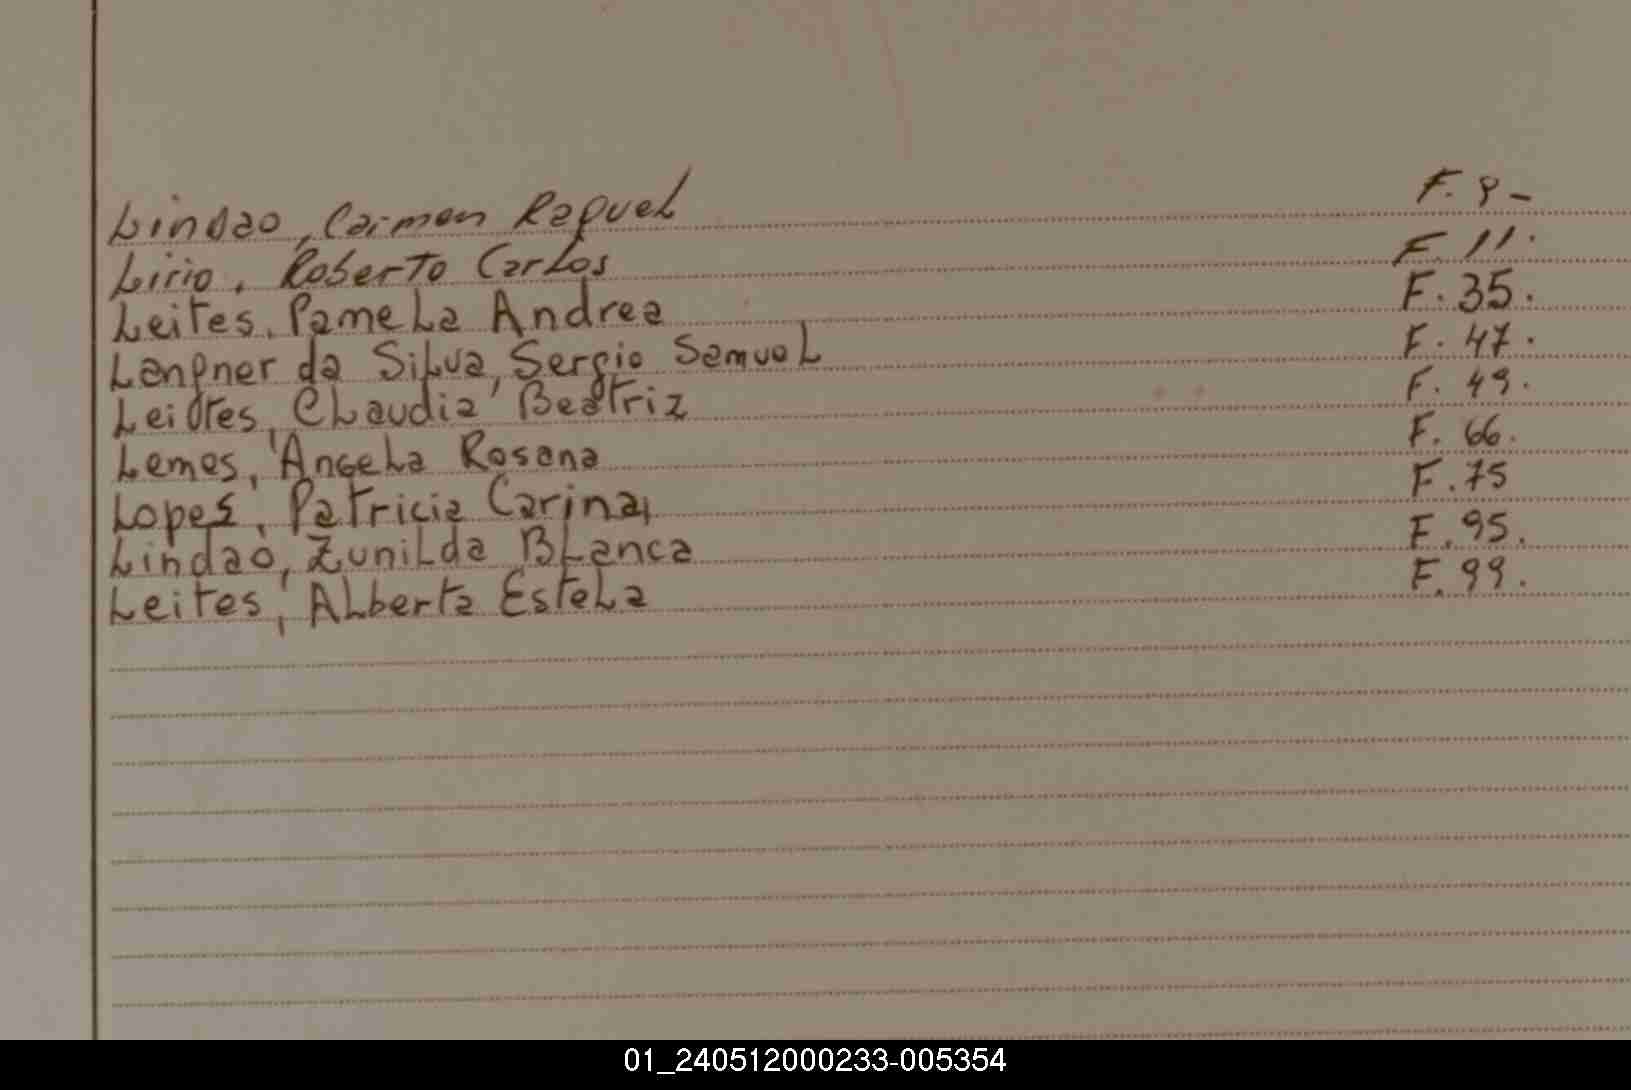 Lindao, Carmen Raquel F. 9 -
Lirio, Roberto Carlos F. 11.
Leites, Pamela Andrea F. 35.
Langner da Silva, Sergio Samuel F. 47.
Leites, Claudia Beatriz F. 49.
Lemes, Angela Rosana F. 66.
Lopes, Patricia Carina F. 75
Lindao, Zunilda Blanca F. 95.
Leites, Alberta Estela F. 99.
01_240512000233-005354